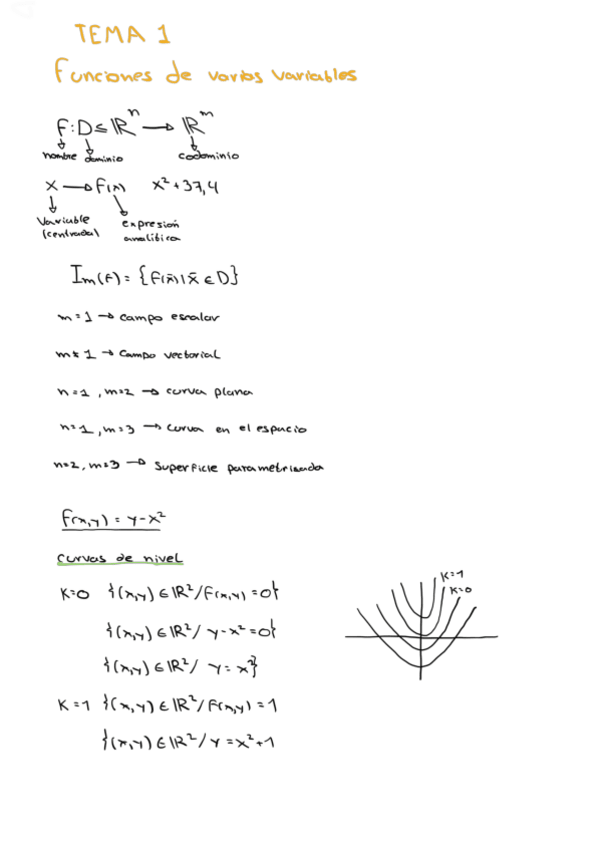 TEMA 1
Funciones de varias variables
F: D ⊆ ℝⁿ → ℝᵐ
nombre dominio codominio
x → F(x) x² + 37,4
Variable expresión
(centrada) analítica
Im(F) = {F(x̄) | x̄ ∈ D}
m = 1 → campo escalar
m ≠ 1 → Campo vectorial
n = 1, m = 2 → curva plana
n = 1, m = 3 → curva en el espacio
n = 2, m = 3 → Superficie parametrizada
F(x,y) = y - x²
curvas de nivel
K=0 {(x,y) ∈ ℝ² / F(x,y) = 0}
{(x,y) ∈ ℝ² / y - x² = 0}
{(x,y) ∈ ℝ² / y = x²}
K=1 {(x,y) ∈ ℝ² / F(x,y) = 1
{(x,y) ∈ ℝ² / y = x² + 1
K=1
K=0